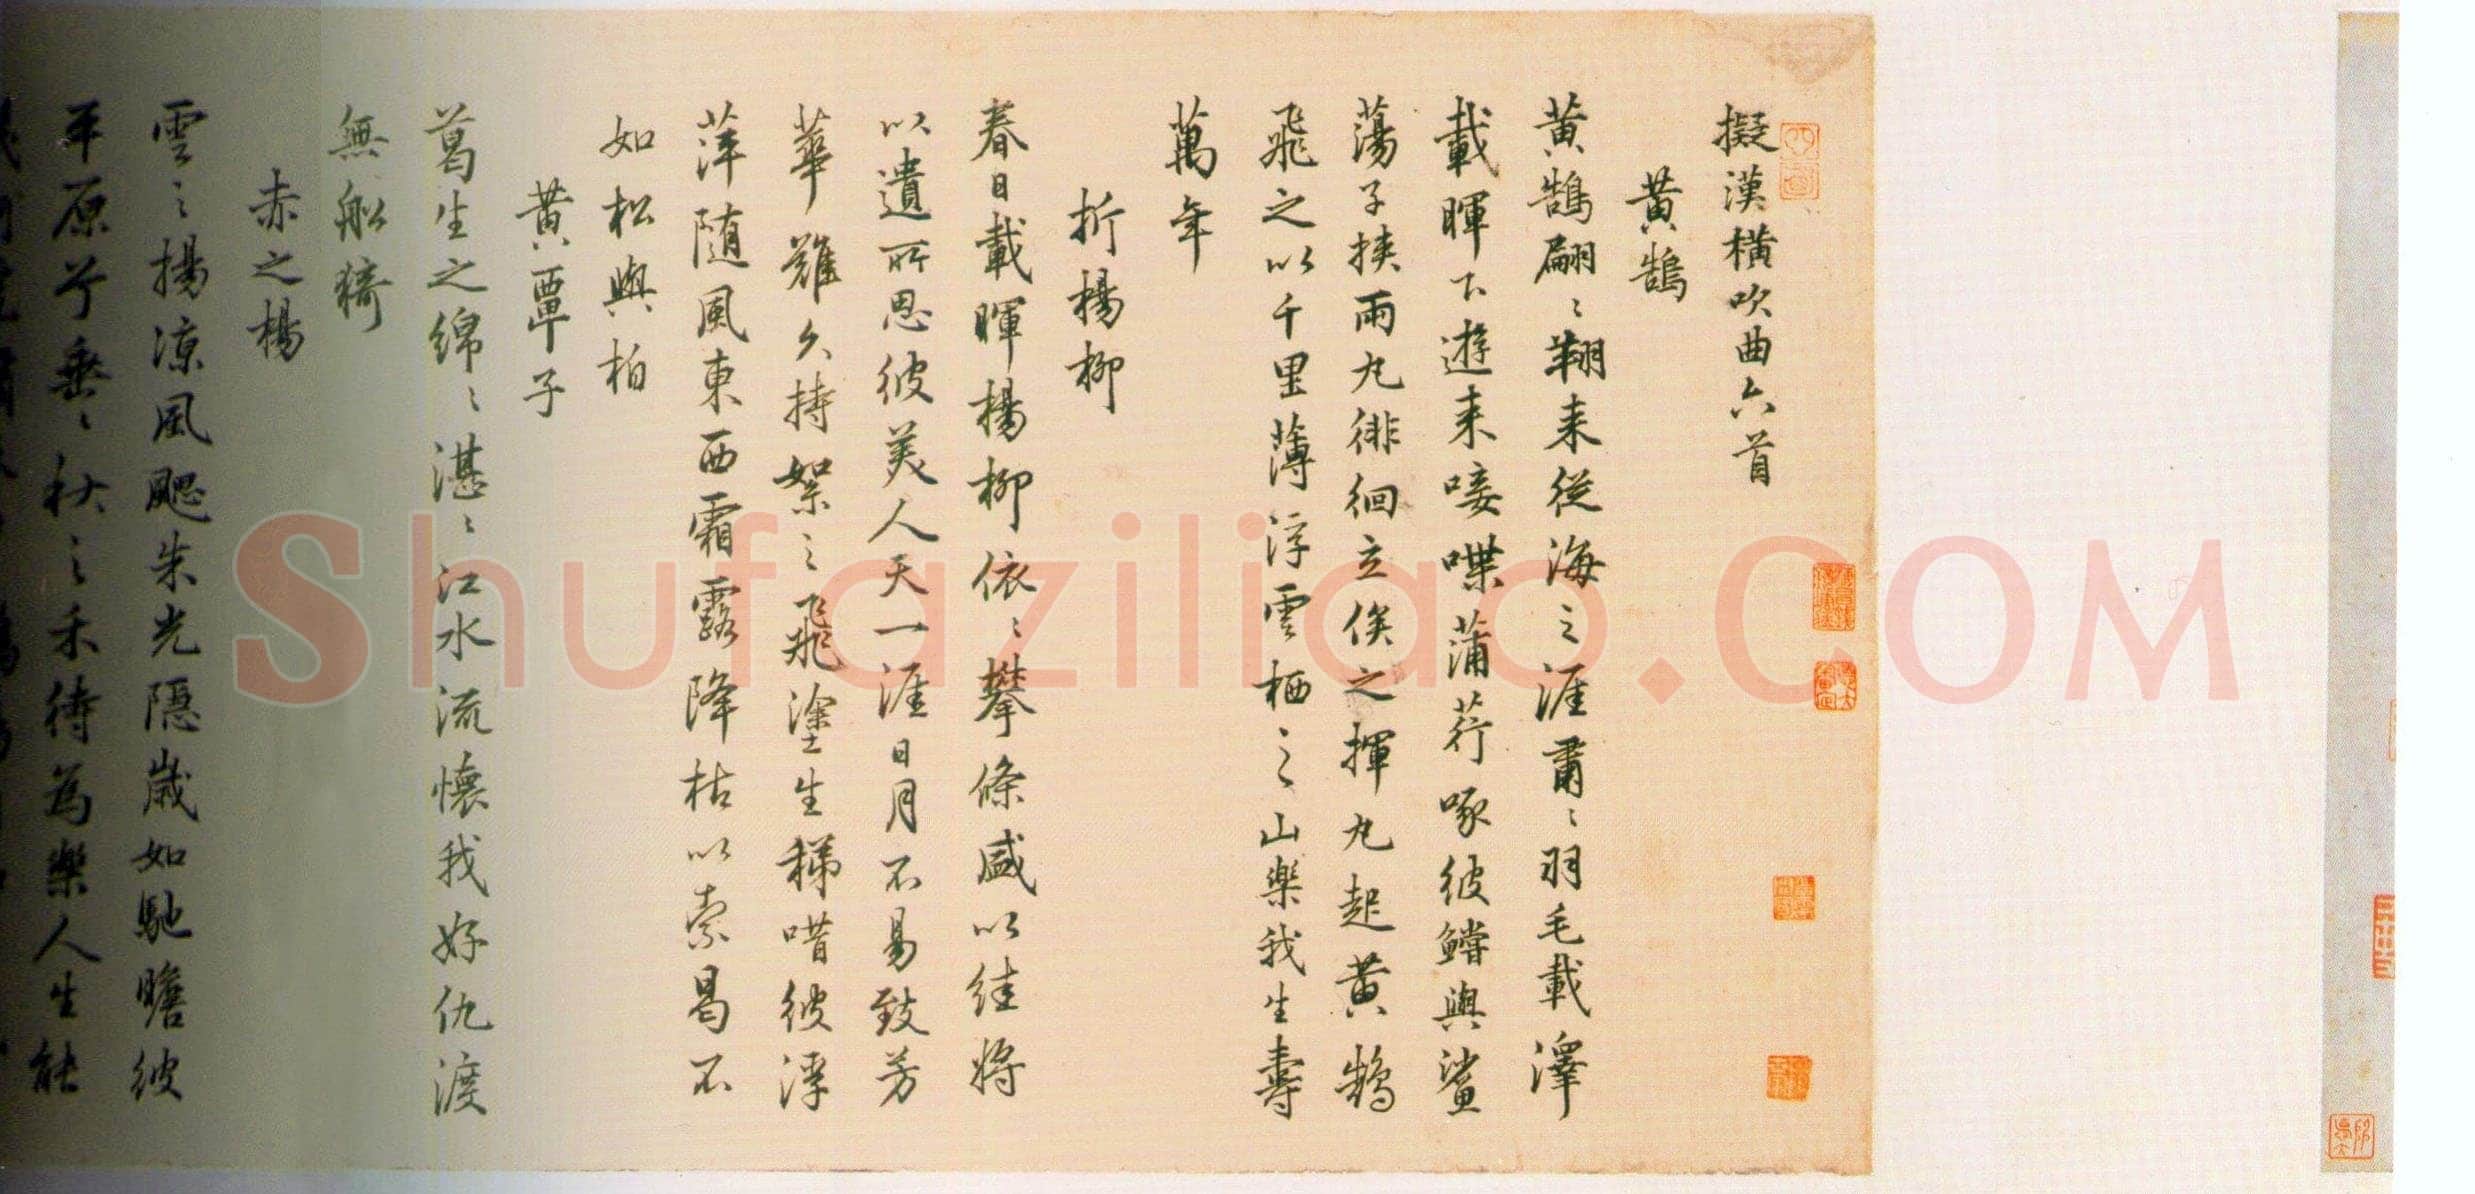 擬漢橫吹曲六首
黃鵠
黃鵠翩〻翔来從海之涯肅〻羽毛載澤
載暉下遊来唼喋蒲荇啄彼鱨與鯊
蕩子挾兩丸徘徊立俟之揮丸起黃鵠
飛之以千里薄浮雲栖之山樂我生壽
萬年
折楊柳
春日載暉楊柳依〻攀條盛以結將
以遺所思彼美人天一涯日月不易致芳
華難久持絮〻飛塗生稊唶彼浮
萍隨風東西霜露降枯以索曷不
如松與柏
黃覃子
葛生之綿〻湛〻江水流懷我好仇渡
無船
赤之楊
雪〻楊涼風颸朱光隱歲如馳瞻彼
平原兮垂〻秋之禾待為樂人生能
Shufaziliao.COM